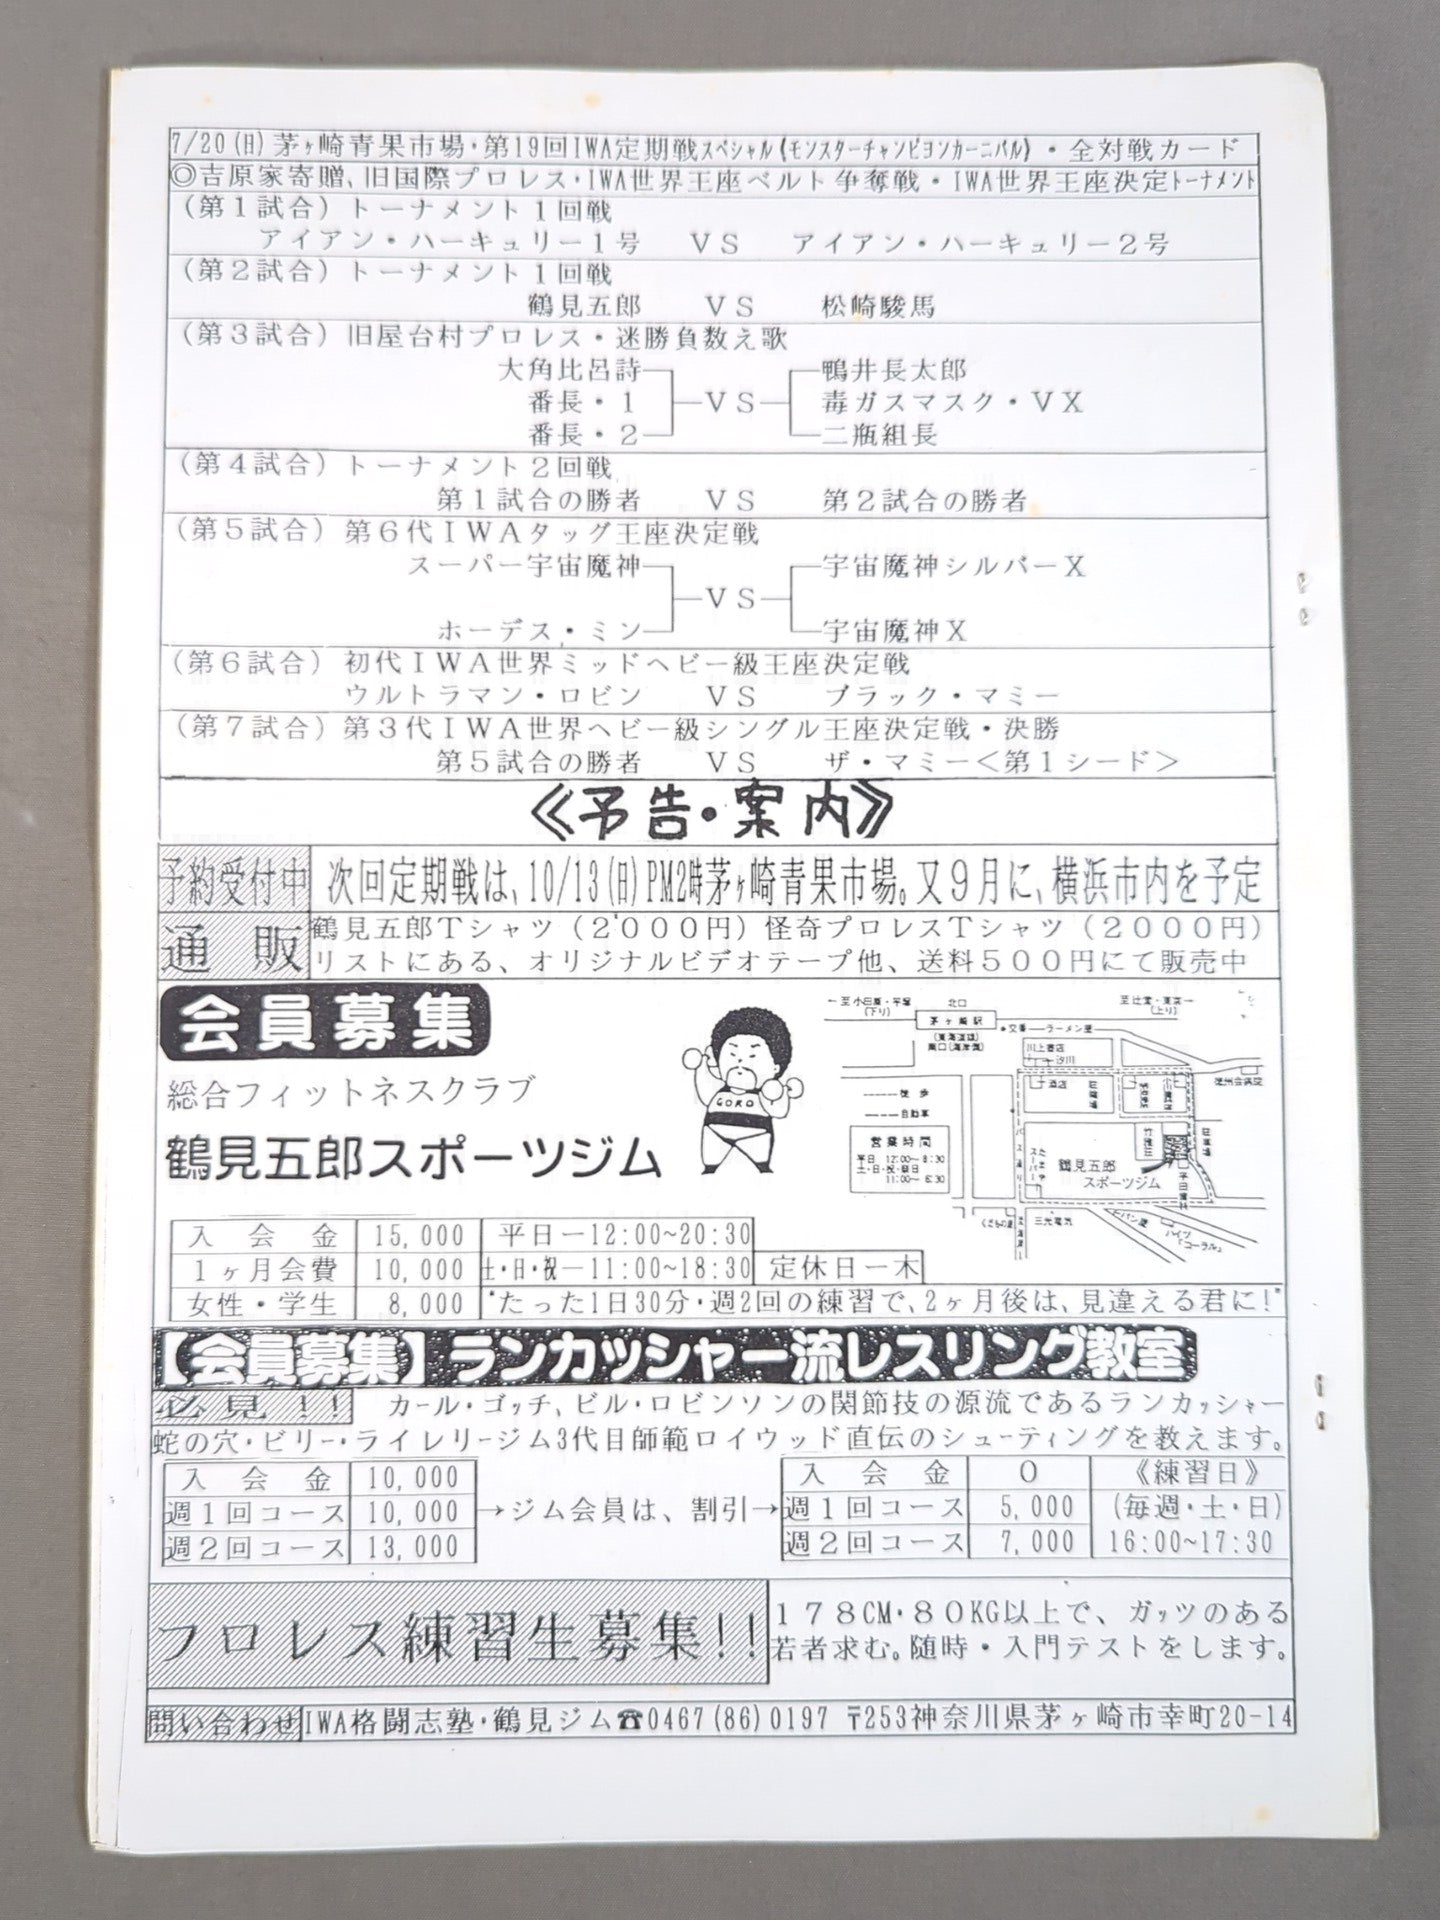 7/20(日)茅ヶ崎青果市場・第19回IWA定期戦スペシャル《モンスターチャンピヨンカーニバル》・全対戦カード
◎吉原家寄贈、旧国際プロレス・IWA世界王座ベルト争奪戦・IWA世界王座決定トーナメント
(第1試合)トーナメント1回戦
アイアン・ハーキュリー1号 VS アイアン・ハーキュリー2号
(第2試合)トーナメント1回戦
鶴見五郎 VS 松崎駿馬
(第3試合)旧屋台村プロレス・迷勝負数え歌
大角比呂詩 鴨井長太郎
番長・1 VS 毒ガスマスク・VX
番長・2 二瓶組長
(第4試合)トーナメント2回戦
第1試合の勝者 VS 第2試合の勝者
(第5試合)第6代IWAタッグ王座決定戦
スーパー宇宙魔神 宇宙魔神シルバーX
VS
ホーデス・ミン 宇宙魔神X
(第6試合)初代IWA世界ミッドヘビー級王座決定戦
ウルトラマン・ロビン VS ブラック・マミー
(第7試合)第3代IWA世界ヘビー級シングル王座決定戦・決勝
第5試合の勝者 VS ザ・マミー<第1シード>
《予告・案内》
予約受付中 次回定期戦は、10/13(日)PM2時茅ヶ崎青果市場。又9月に、横浜市内を予定
通販 鶴見五郎Tシャツ(2'000円)怪奇プロレスTシャツ(2000円)
リストにある、オリジナルビデオテープ他、送料500円にて販売中
会員募集
総合フィットネスクラブ
鶴見五郎スポーツジム
GORO
←至小田原・平塚
(下り)
北口
茅ヶ崎駅
(東海道線)
南口(海岸側)
至辻堂・東京→
(上り)
交番
ラーメン屋
川上書店
汐川
酒店
駐車場
徳州会病院
徒歩
自動車
営業時間
平日 12:00〜8:30
土・日・祝・祭日
11:00〜6:30
バス通り
駐車場
鶴見五郎
スポーツジム
くだもの屋
三光電気
パン屋
ハイツ
「コーラル」
入会金 15,000 平日ー12:00~20:30
1ヶ月会費 10,000 土・日・祝ー11:00~18:30 定休日ー木
女性・学生 8,000 "たった1日30分・週2回の練習で、2ヶ月後は、見違える君に!"
【会員募集】ランカッシャー流レスリング教室
必見!! カール・ゴッチ、ビル・ロビンソンの関節技の源流であるランカッシャー
蛇の穴・ビリー・ライレリージム3代目師範ロイウッド直伝のシューティングを教えます。
入会金 10,000
週1回コース 10,000
週2回コース 13,000
→ジム会員は、割引→
入会金 0 《練習日》
週1回コース 5,000 (毎週・土・日)
週2回コース 7,000 16:00~17:30
プロレス練習生募集!! 178CM・80KG以上で、ガッツのある
若者求む。随時・入門テストをします。
問い合わせ IWA格闘志塾・鶴見ジム☎0467(86)0197 〒253神奈川県茅ヶ崎市幸町20-14